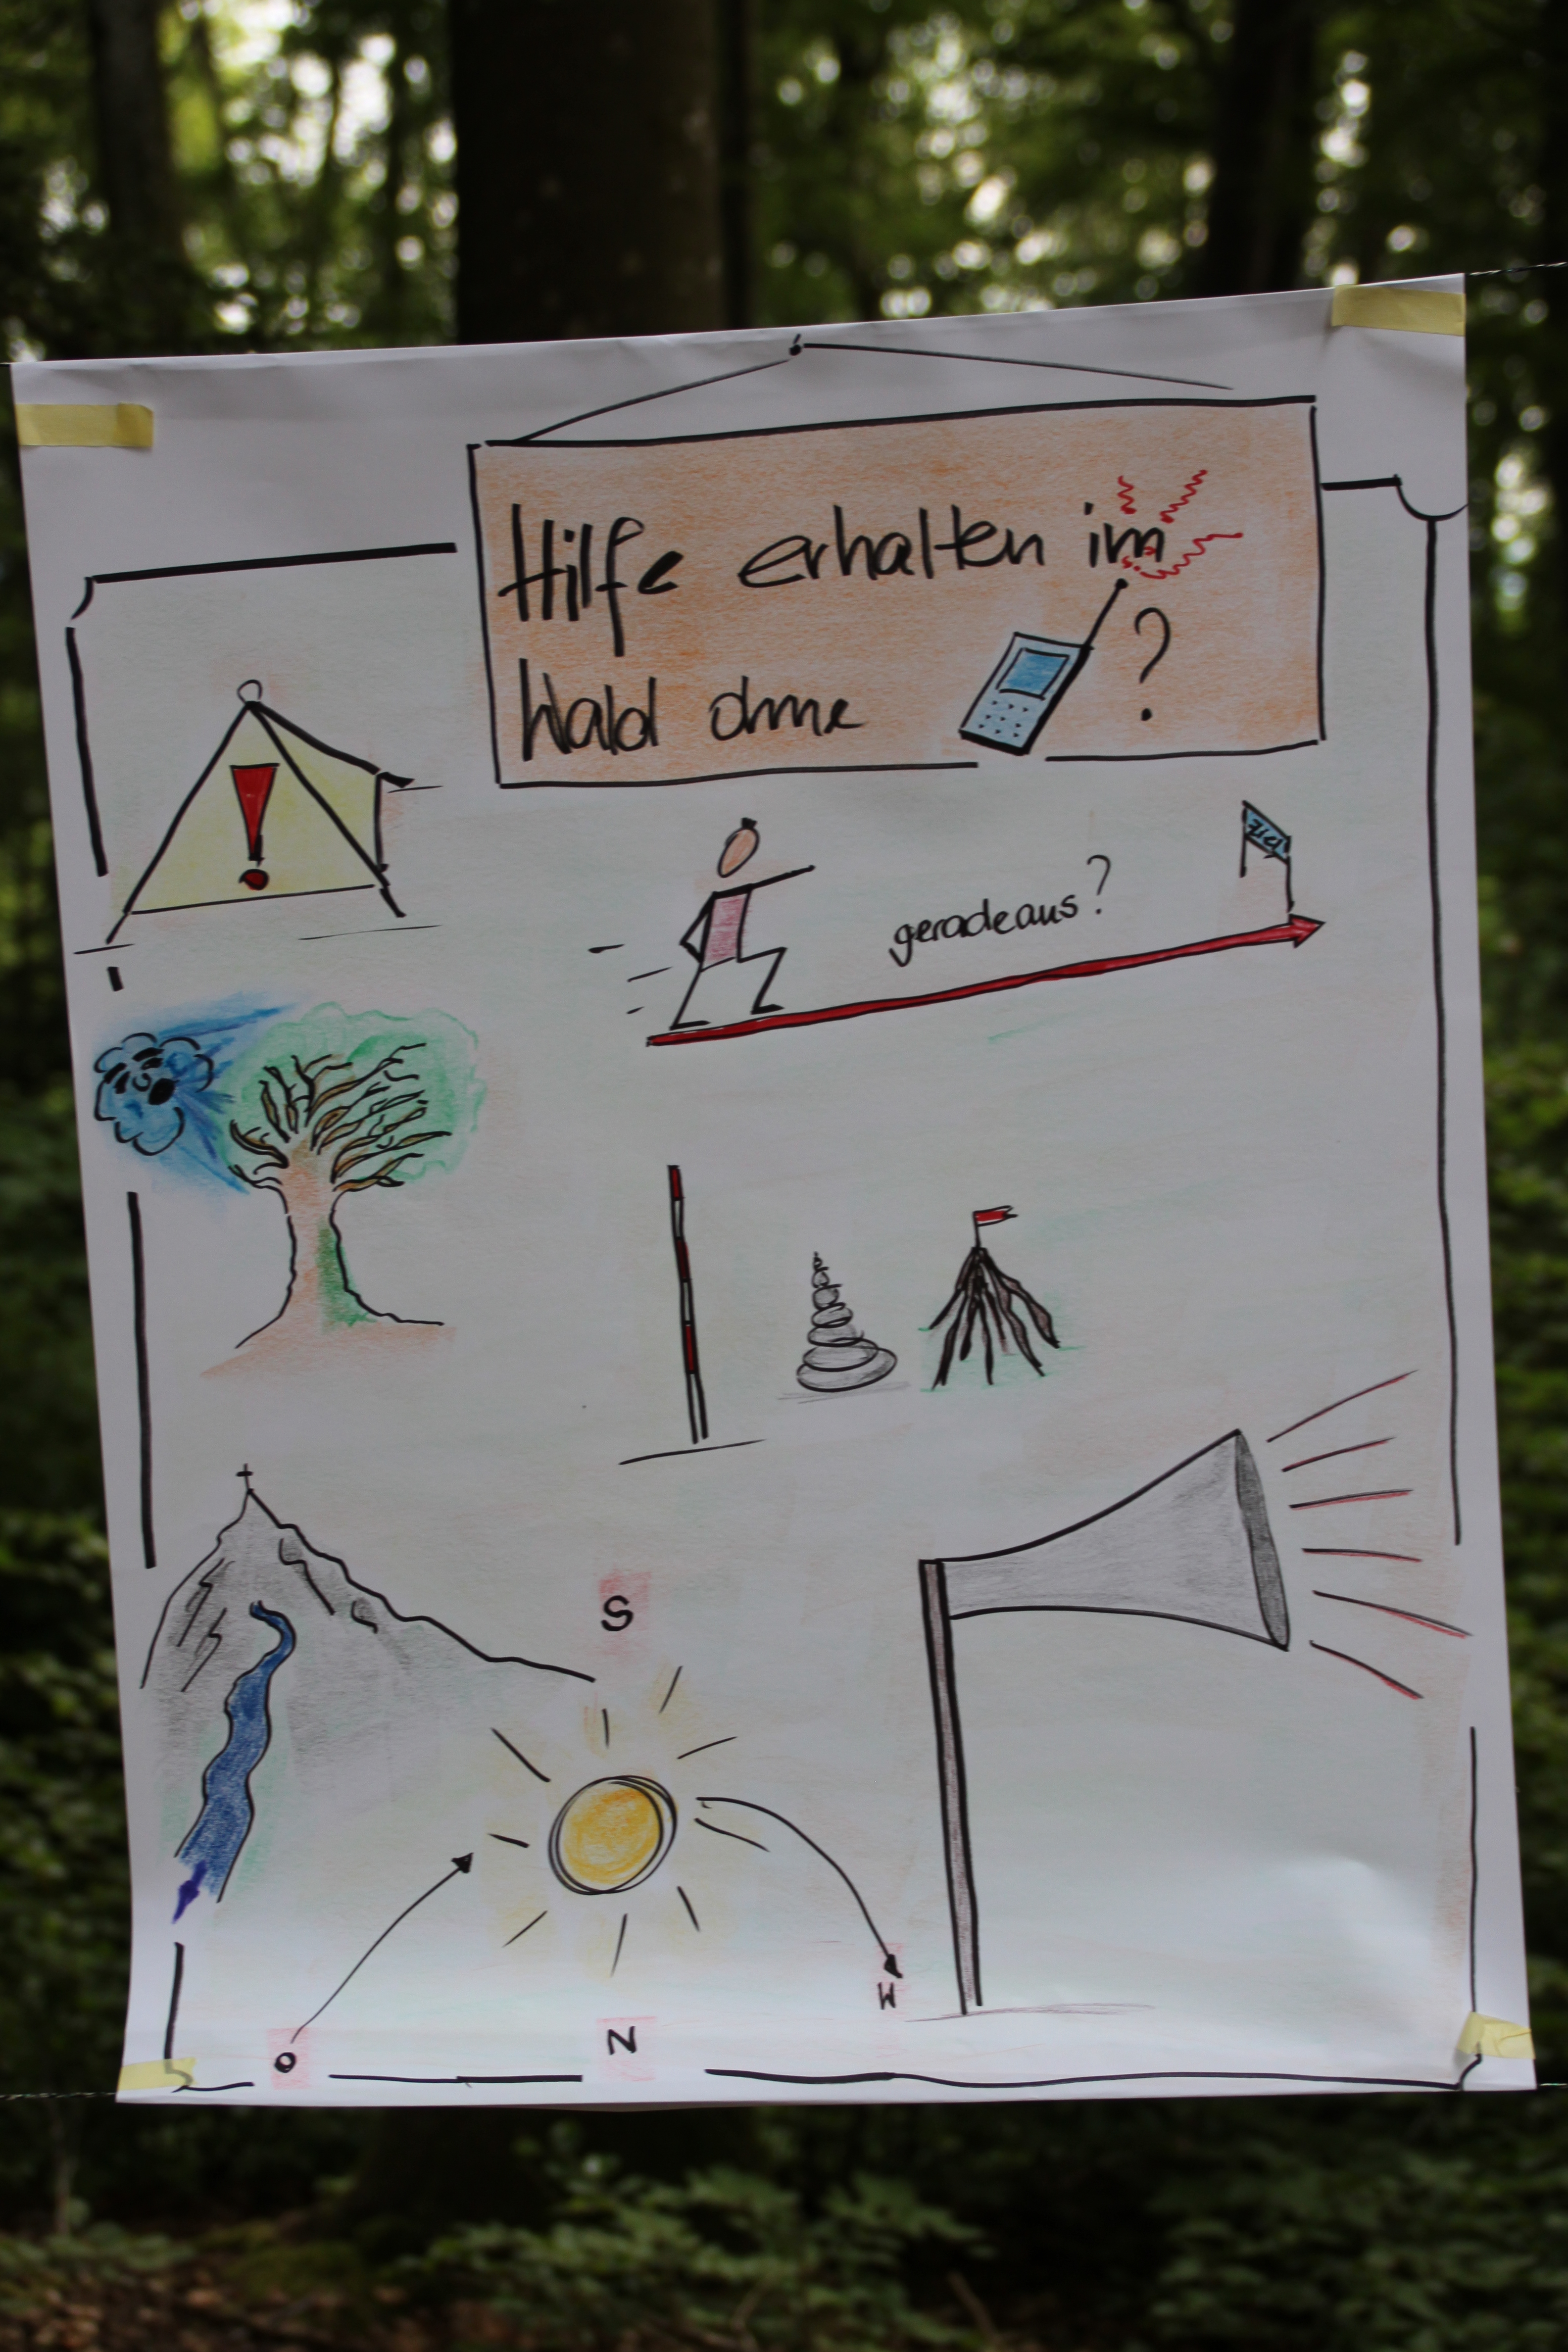 Hilfe erhalten im
Wald ohne ?
ZIEL
geradeaus?
S
W
N
O